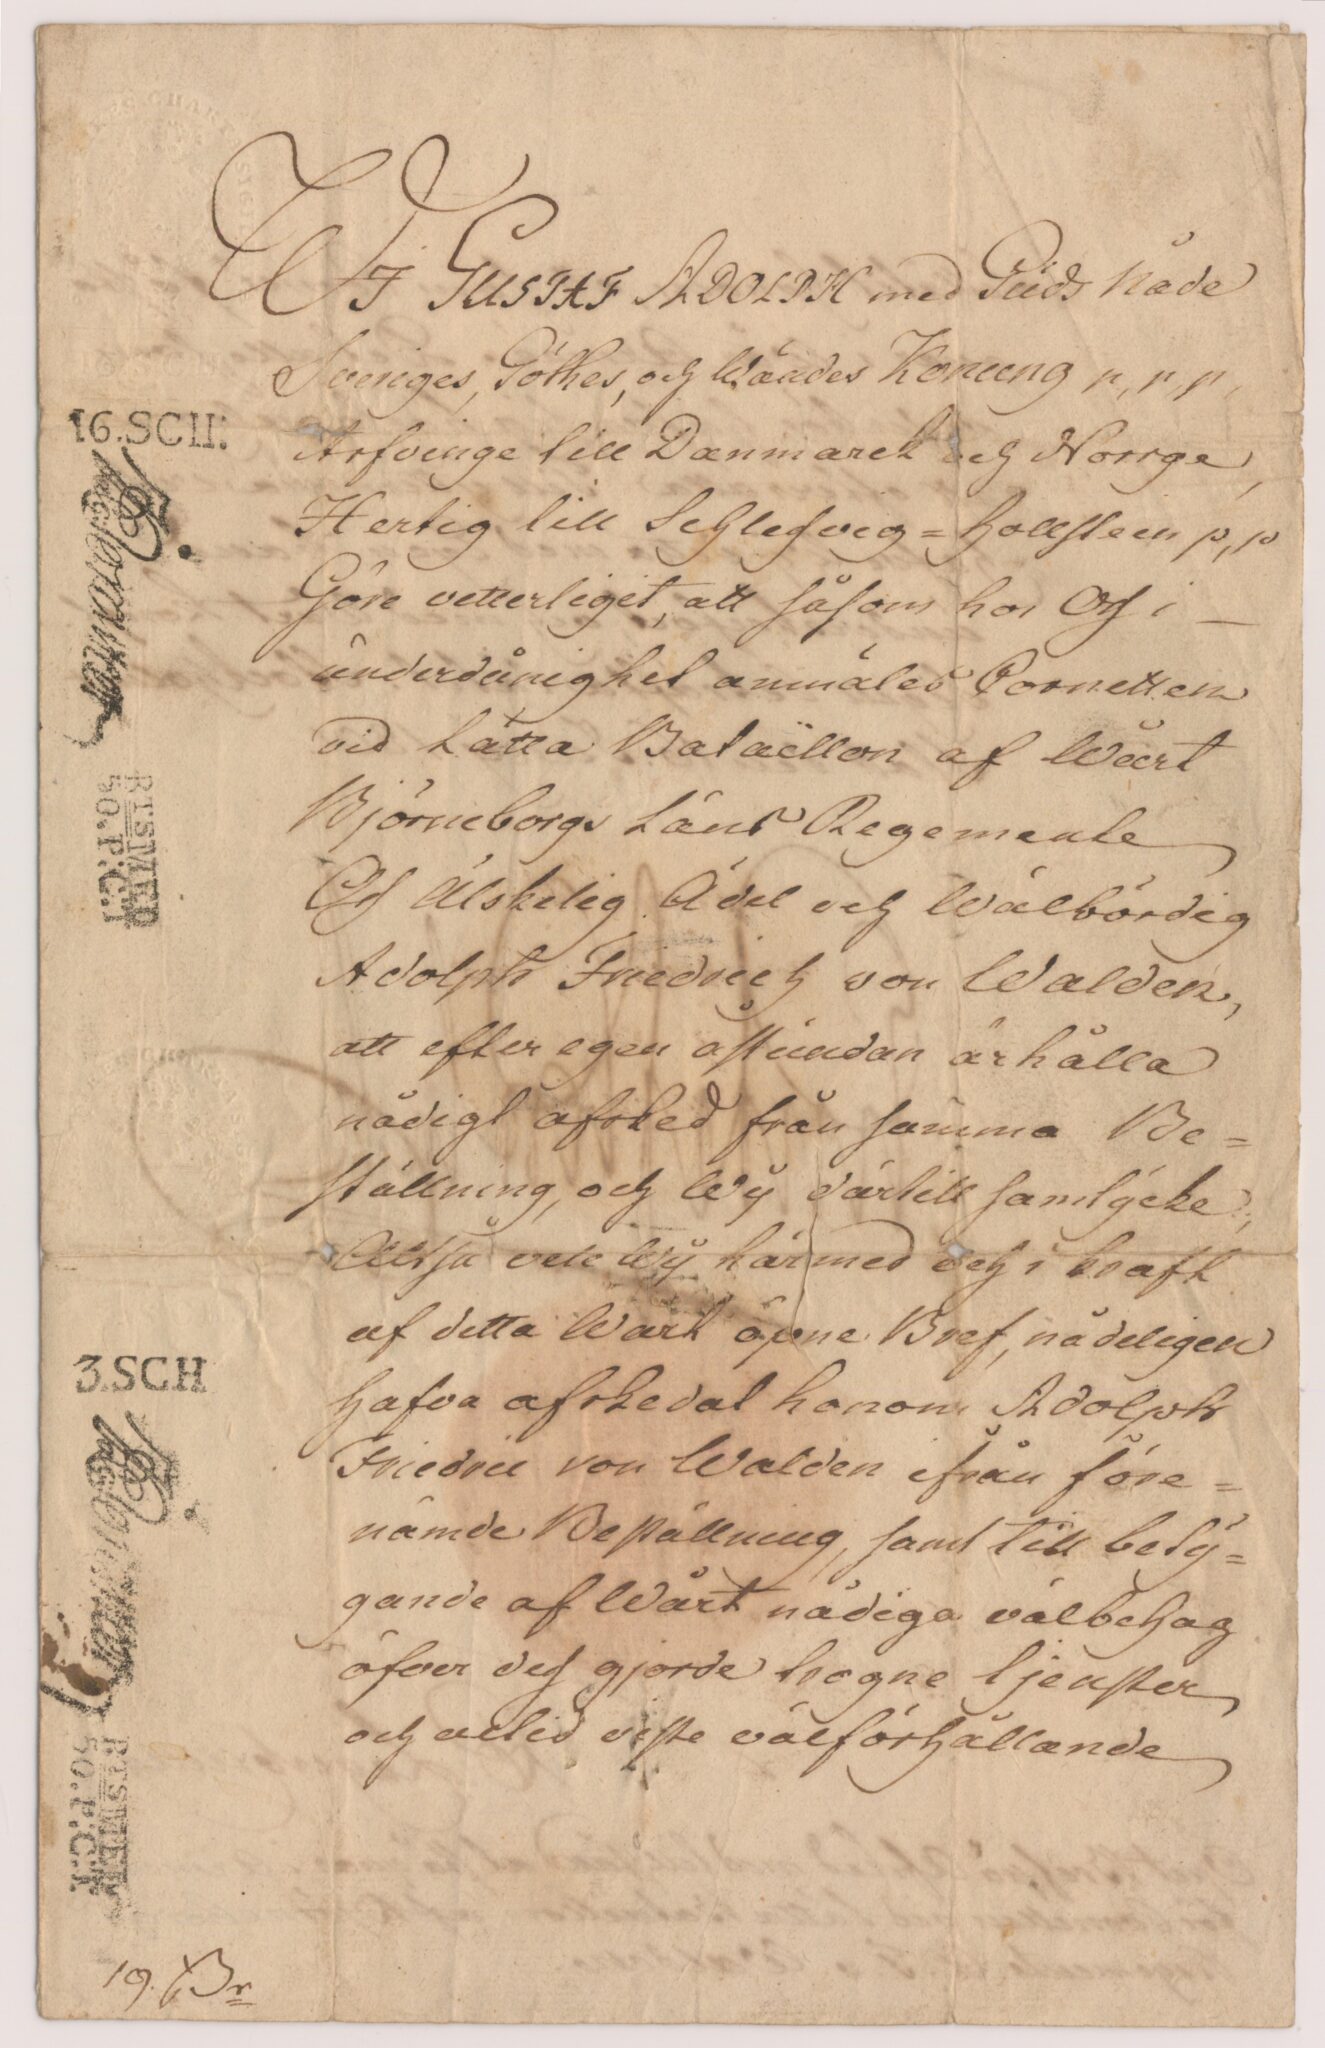 WJ GUSTAF ADOLPH med Guds Nåde
Sveriges, Göthes, och Wändes Konung p, p, p,
Arfvinge till Danmarck och Norrge,
Hertig till Schlesvig=Hollsteen p, p
Göre vetterligit, att såsom hos Oss i
underdånighet anmäles Cornetten
vid Lätta Bataëllon af Wårt
Björneborgs Läns Regemente
Oss Älskelig Ädel och Wälbördig
Adolph Friedrich von Walden,
att efter egen åstundan ärhålla
nådigt afsked från samma Be=
ställning, och Wij därtill samtycke;
Altså vele Wij härmed och i kraft
af detta Wårt öpne Bref, nådeligen
hafva afskedat honom Adolph
Friedric von Walden ifrån före=
nämde Beställning, samt till bety=
gande af Wårt nådiga välbehag
öfver dess gjorde trogne tjenster
och altid viste välförhållande
16.SCH:
RTSMED
50.P.C.T
3.SCH
RTSMED
50.P.C.T
19.